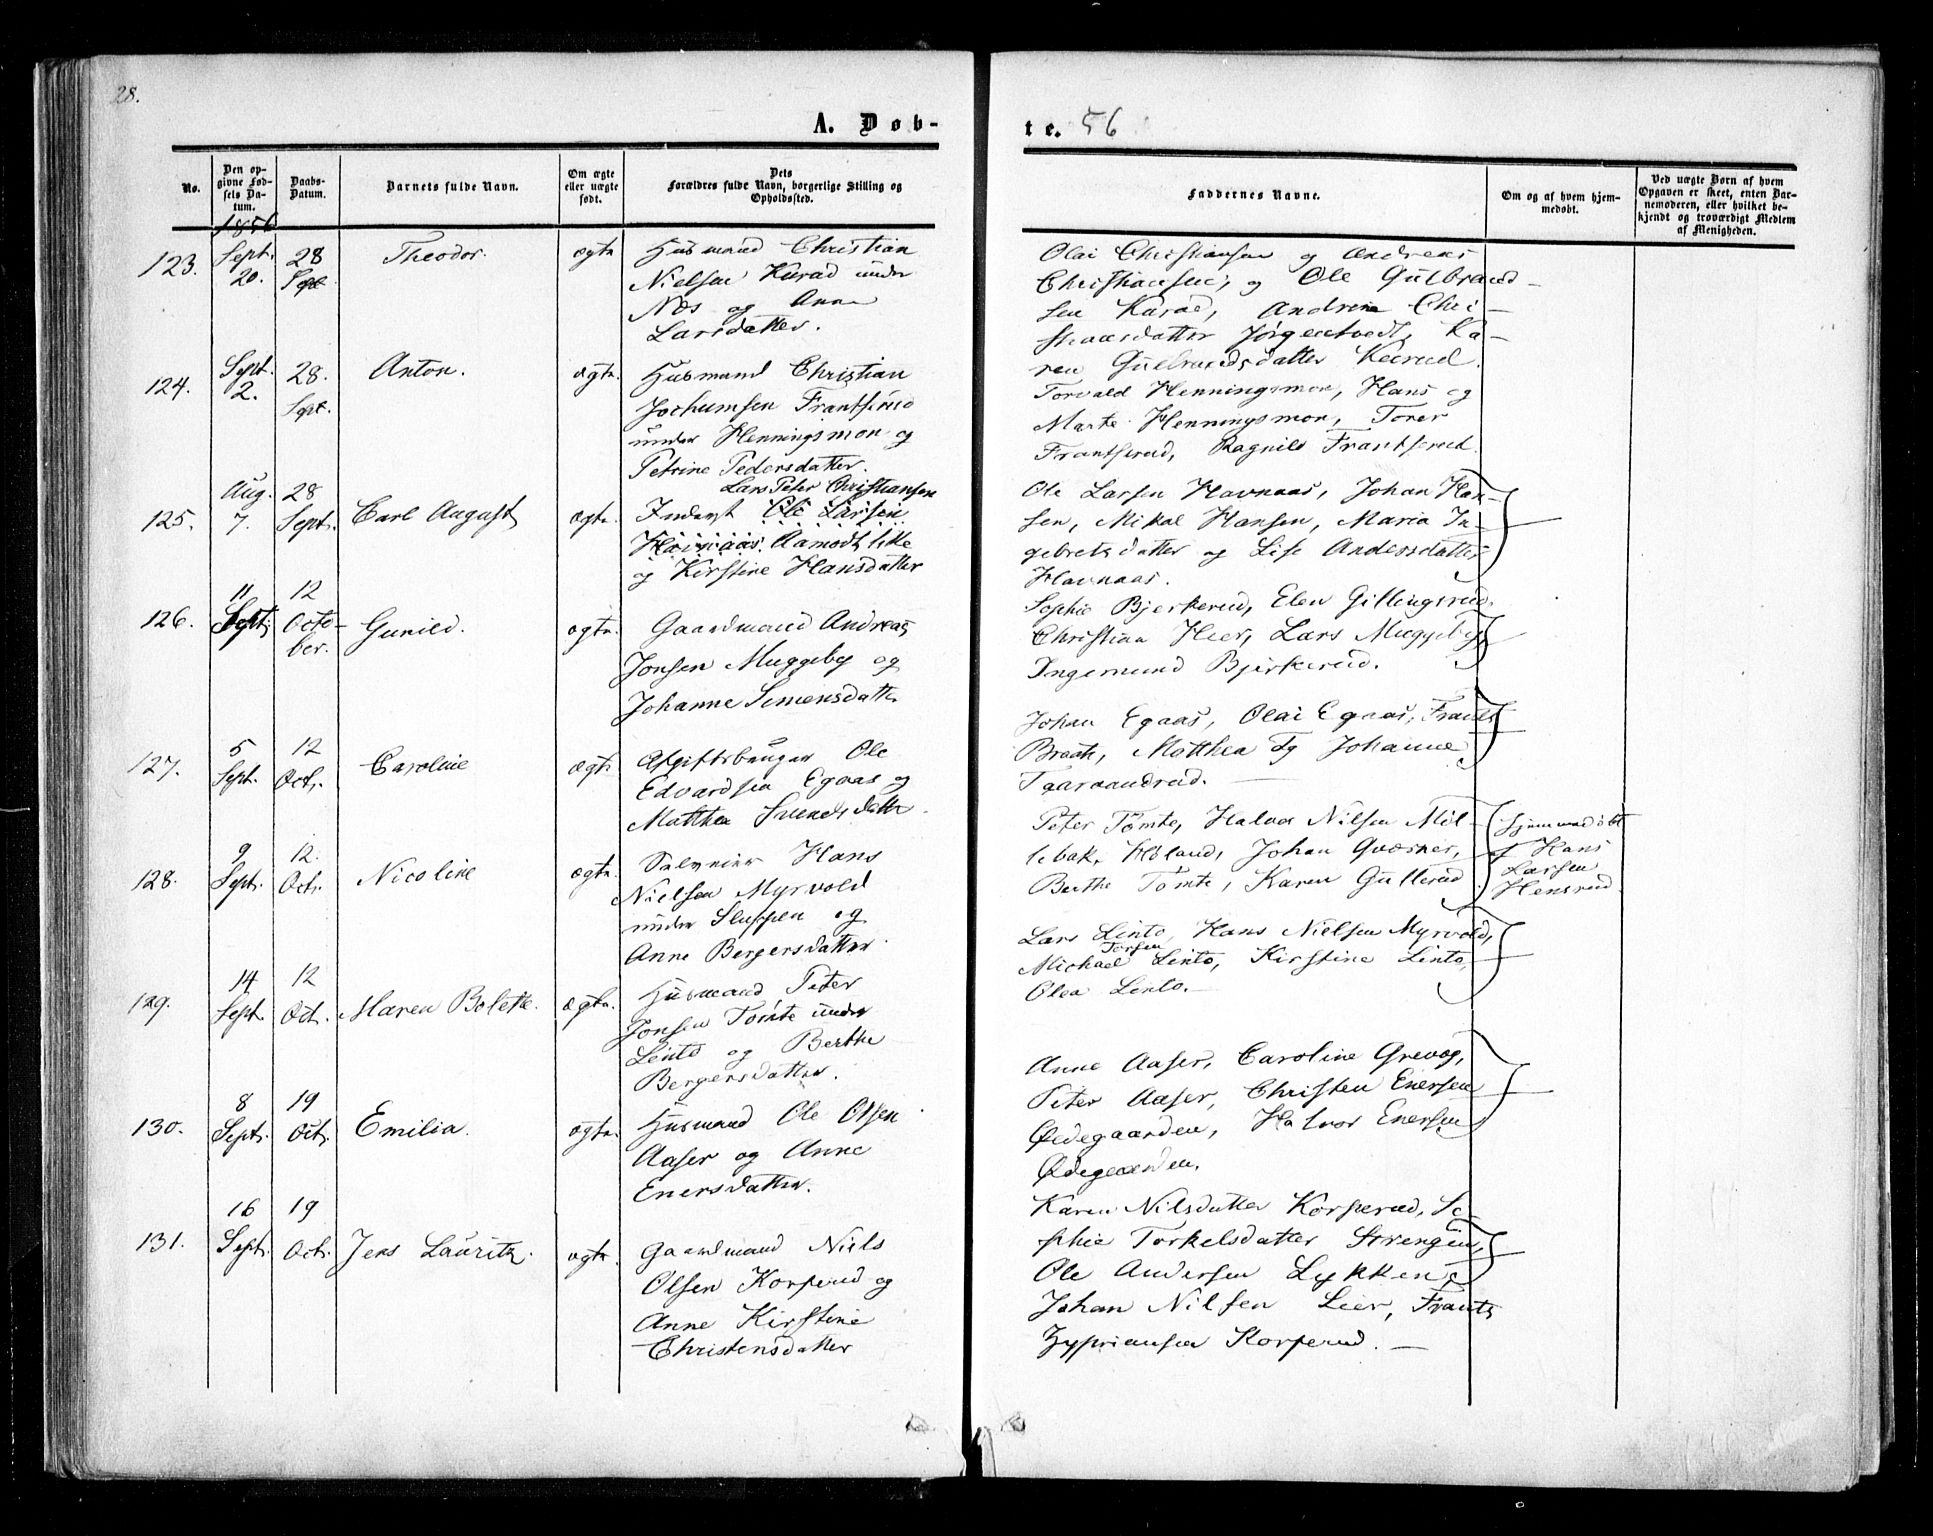 28.
A. Døb-
te. 56
No.
Den op-
givne Fød-
sels Da-
tum.
Daabs-
Datum.
Barnets fulde Navn.
Om ægte
eller uægte
født.
Dets
Forældres fulde Navn, borgerlige Stilling og
Opholdssted.
Faddernes Navne.
Om og af hvem hjem-
medøbt.
Ved uægte Børn af hvem
Opgaven er skeet, enten Bar-
nemoderen, eller hvilket be-
kjendt og troværdigt Medlem
af Menigheden.
1856
123.
Sept.
20.
28
Sept
Theodor.
ægte
Husmand Christian
Nielsen Kurad under
Næs og Anne
Larsdatter.
Olai Christiansen og Andreas
Christiansen, og Ole Gulbrand-
sen Karad, Andrine Chri-
stiansdatter Jørgentvedt, Ka-
ren Gulbrandsdatter Keerud.
124.
Sept.
2.
28.
Sept.
Anton.
ægte.
Husmand Christian
Jochumsen Frantserud
under Henningsmon og
Petrine Pedersdatter.
Torvald Henningsmon, Hans og
Marte Henningsmon, Torer
Frantserud, Ragnild Frantserud.
125.
Aug.
7.
28
Sept.
Carl August
ægte.
Lars Peter Christiansen
Inderst Ole Larsen
Havnaas. Aamodt lille
og Kirstine Hansdatter
Ole Larsen Havnaas, Johan Han-
sen, Mikal Hansen, Maria In-
gebretsdatter og Lise Andersdatter
Havnaas.
126.
11
Sept.
12
Octo-
ber.
Gunild.
ægte.
Gaardmand Andreas
Jonsen Muggeby og
Johanne Simensdatter
Sophie Bjerkerud, Elen Gillingsrud,
Christian Heer, Lars Muggeby,
Ingemund Bjerkerud.
127.
5
Sept.
12
Oct.
Caroline
ægte
Afgiftsbruger Ole
Edvardsen Egaas og
Matthea Svendsdatter.
Johan Egaas, Olai Egaas, Frants
Braate, Matthea og Johanne
Taaraandrud.
128.
9
Sept.
12.
Oct.
Nicoline
ægte.
Hans
Nielsen Myrvold
under Sluppen og
Anne Bergersdatter.
Peter Tømte, Halvor Nilsen Møl-
lebak, Høland, Johan Qvesner,
Berthe Tømte, Karen Gullerud
Hjemmedøbt
af Hans
Larsen
Hensrud.
129.
14
Sept.
12
Oct.
Maren Bolette.
ægte.
Husmand Peter
Jonsen Tømte under
Linto og Berthe
Bergersdatter.
Lars Linto, Hans Nielsen Myrvold,
Torsen
Michael Linto, Kirstine Linto,
Olea Linto.
130.
8
Sept.
19
Oct.
Emilia.
ægte.
Husmand Ole Olsen
Aaser og Anne
Enersdatter.
Anne Aaser, Caroline Grevog,
Peter Aaser, Christen Enersen
Ødegaarden, Halvor Enersen
Ødegaarden.
131.
16
Sept.
19
Oct.
Jens Lauritz.
ægte.
Gaardmand Niels
Olsen Korperud og
Anne Kirstine
Christensdatter
Karen Nilsdatter Korperud, So-
phie Torkelsdatter Strengen,
Ole Andersen Lykken,
Johan Nilsen Lier, Frants
Zypriansen Korperud.